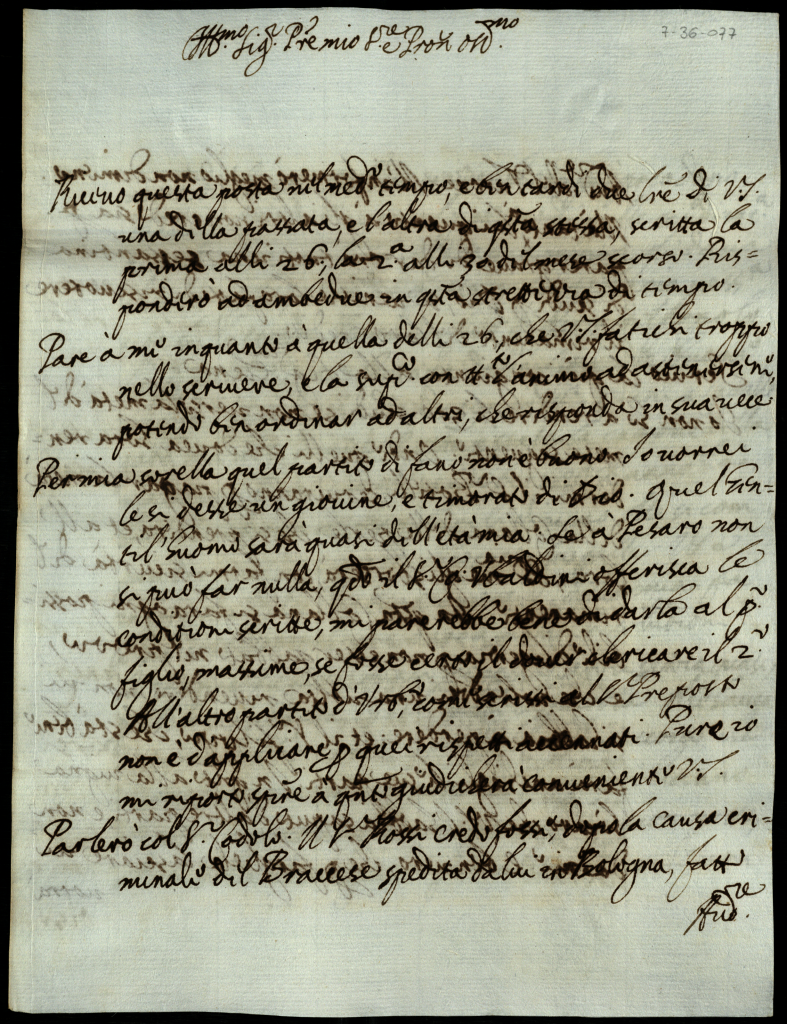 7-36-077
Ill.mo Sig.re P.re mio S.re e Pron oss.mo
Ricevo questa posta nel med.o tempo, e ben tardi due lre di V.S.
una della passata, e l'altra di qsta stessa, scritta la
prima alli 26, la 2.a alli 30 del mese scorso. Ris=
ponderò ad ambedue in qsta strettezza di tempo.
Pare à me inquanto à quella delli 26, che V.S. fatichi troppo
nello scrivere, e la sup.co con tt.o l'animo ad astenersene,
potendo ben ordinar ad altri, che risponda in sua vece.
Per mia sorella quel partito di fano non è buono. Io vorrei
le si desse un giovine, e timorato di Dio. Quel Gen=
til'huomo sarà quasi dell'età mia. Se à Pesaro non
si può far nulla, qdo il S.r Co. Ubaldini offerisca le
condizioni scritte, mi parerebbe bene di darla al p.o
figlio, massime, se fosse certo il dover clericare il 2.o
All'altro partito d'Urb.o, come scrissi al S.r Preposto
non è d'applicare p quei rispetti accennati. Pure io
mi riporto sempre à qnto giudicherà conveniente V.S.
Parlerò col S.r Cadolo. Il S.r Rossi credo fosse, dopo la causa cri=
minale del Braccese spedita da lui in Bologna, fatto
Aud.re